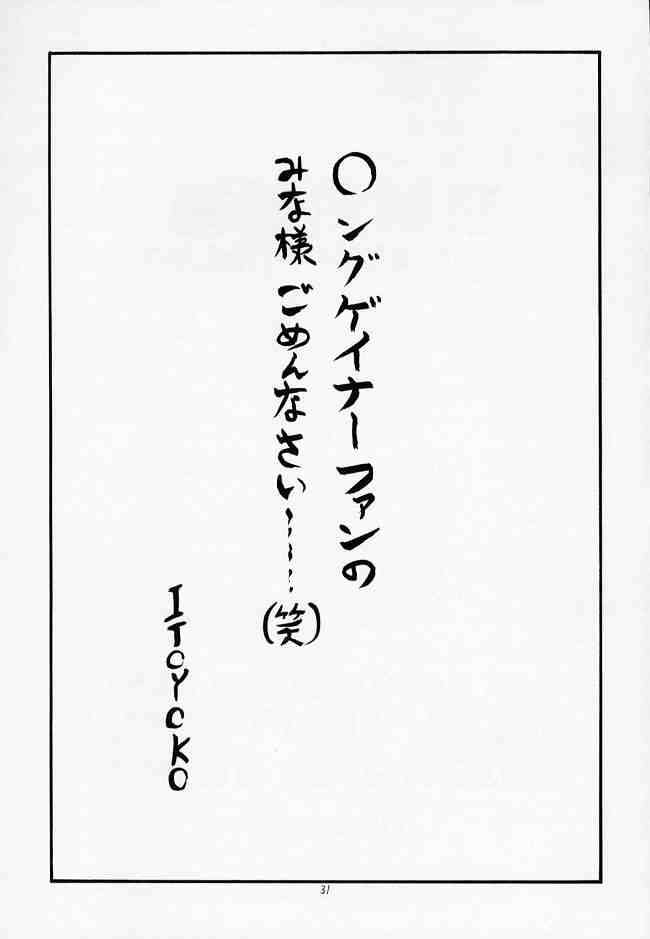 〇ングゲイナーファンの
みな様 ごめんなさい……
(笑)
ITOYOKO
31